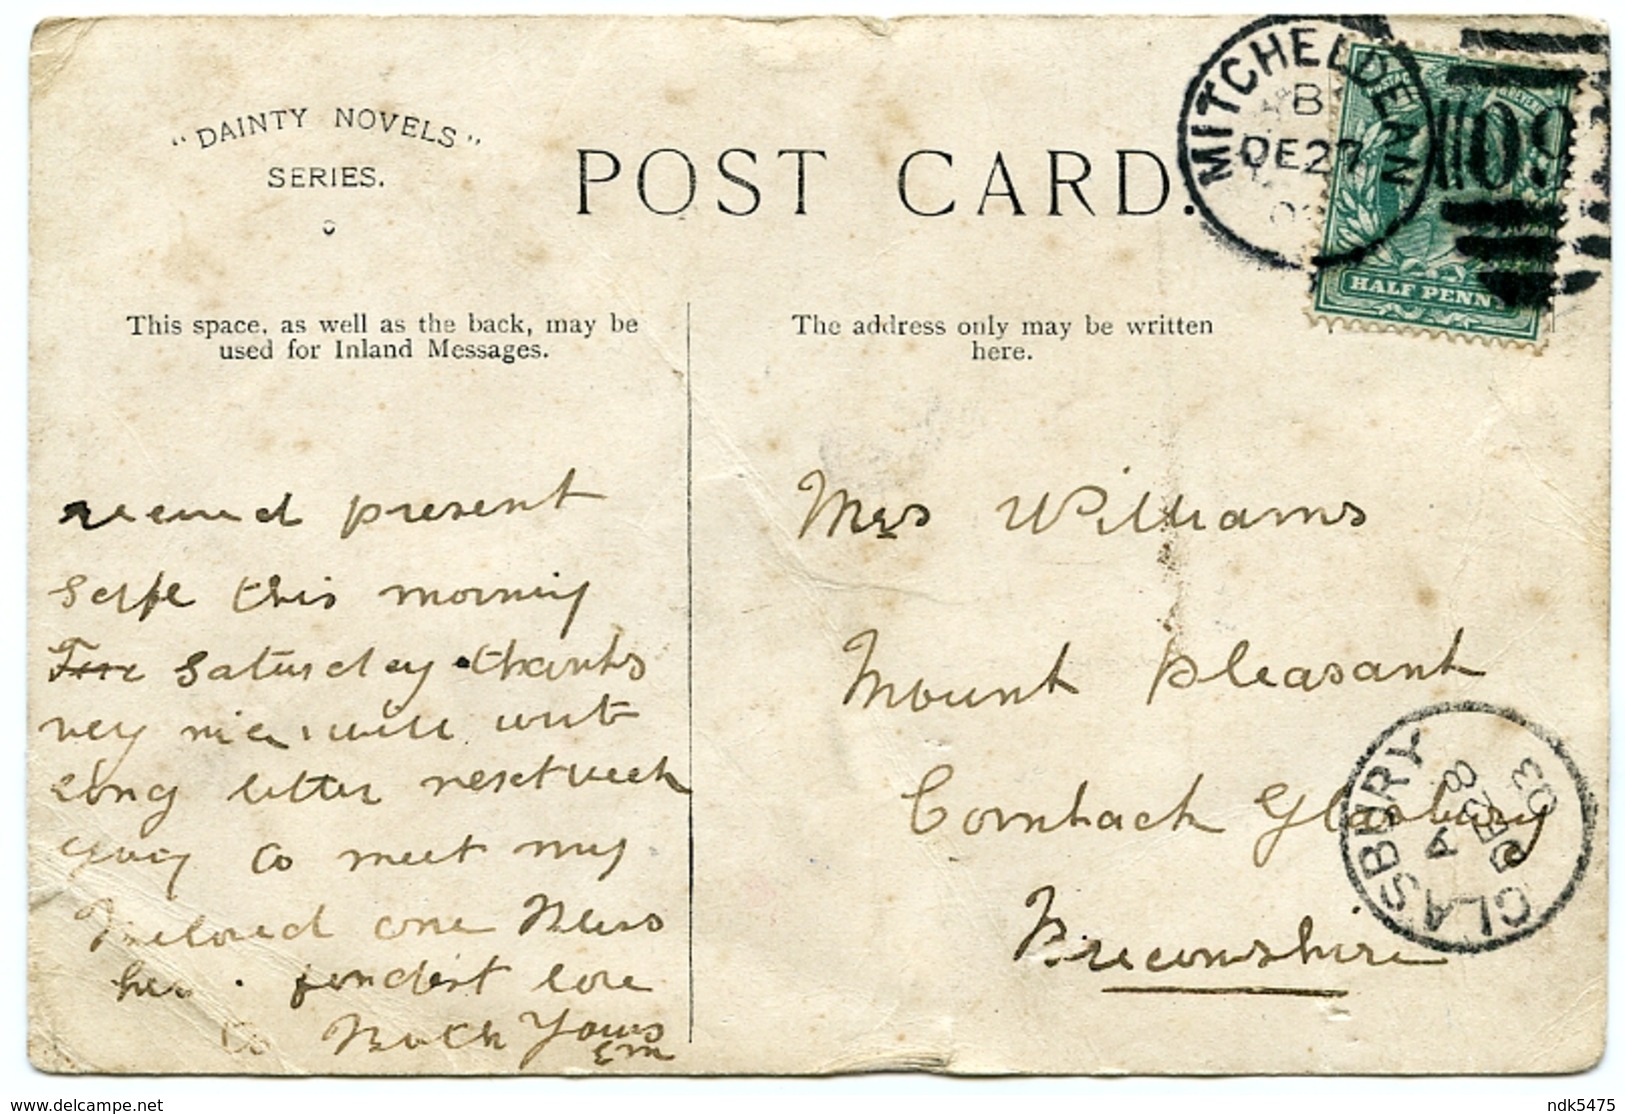 "DAINTY NOVELS"
SERIES.
POST CARD.
MITCHELDEAN
B
DE 27
03
09
HALF PENNY
This space, as well as the back, may be
used for Inland Messages.
The address only may be written
here.
received present
safe this morning
Saturday thanks
very nice. will write
long letter next week
going to meet my
Beloved one Bless
her. fondest love
to Both Yours
Em
Mrs Williams
Mount Pleasant
Cornhack Glasbury
Breconshire
GLASBURY
A
DE 28
03
delcampe.net
ndk5475